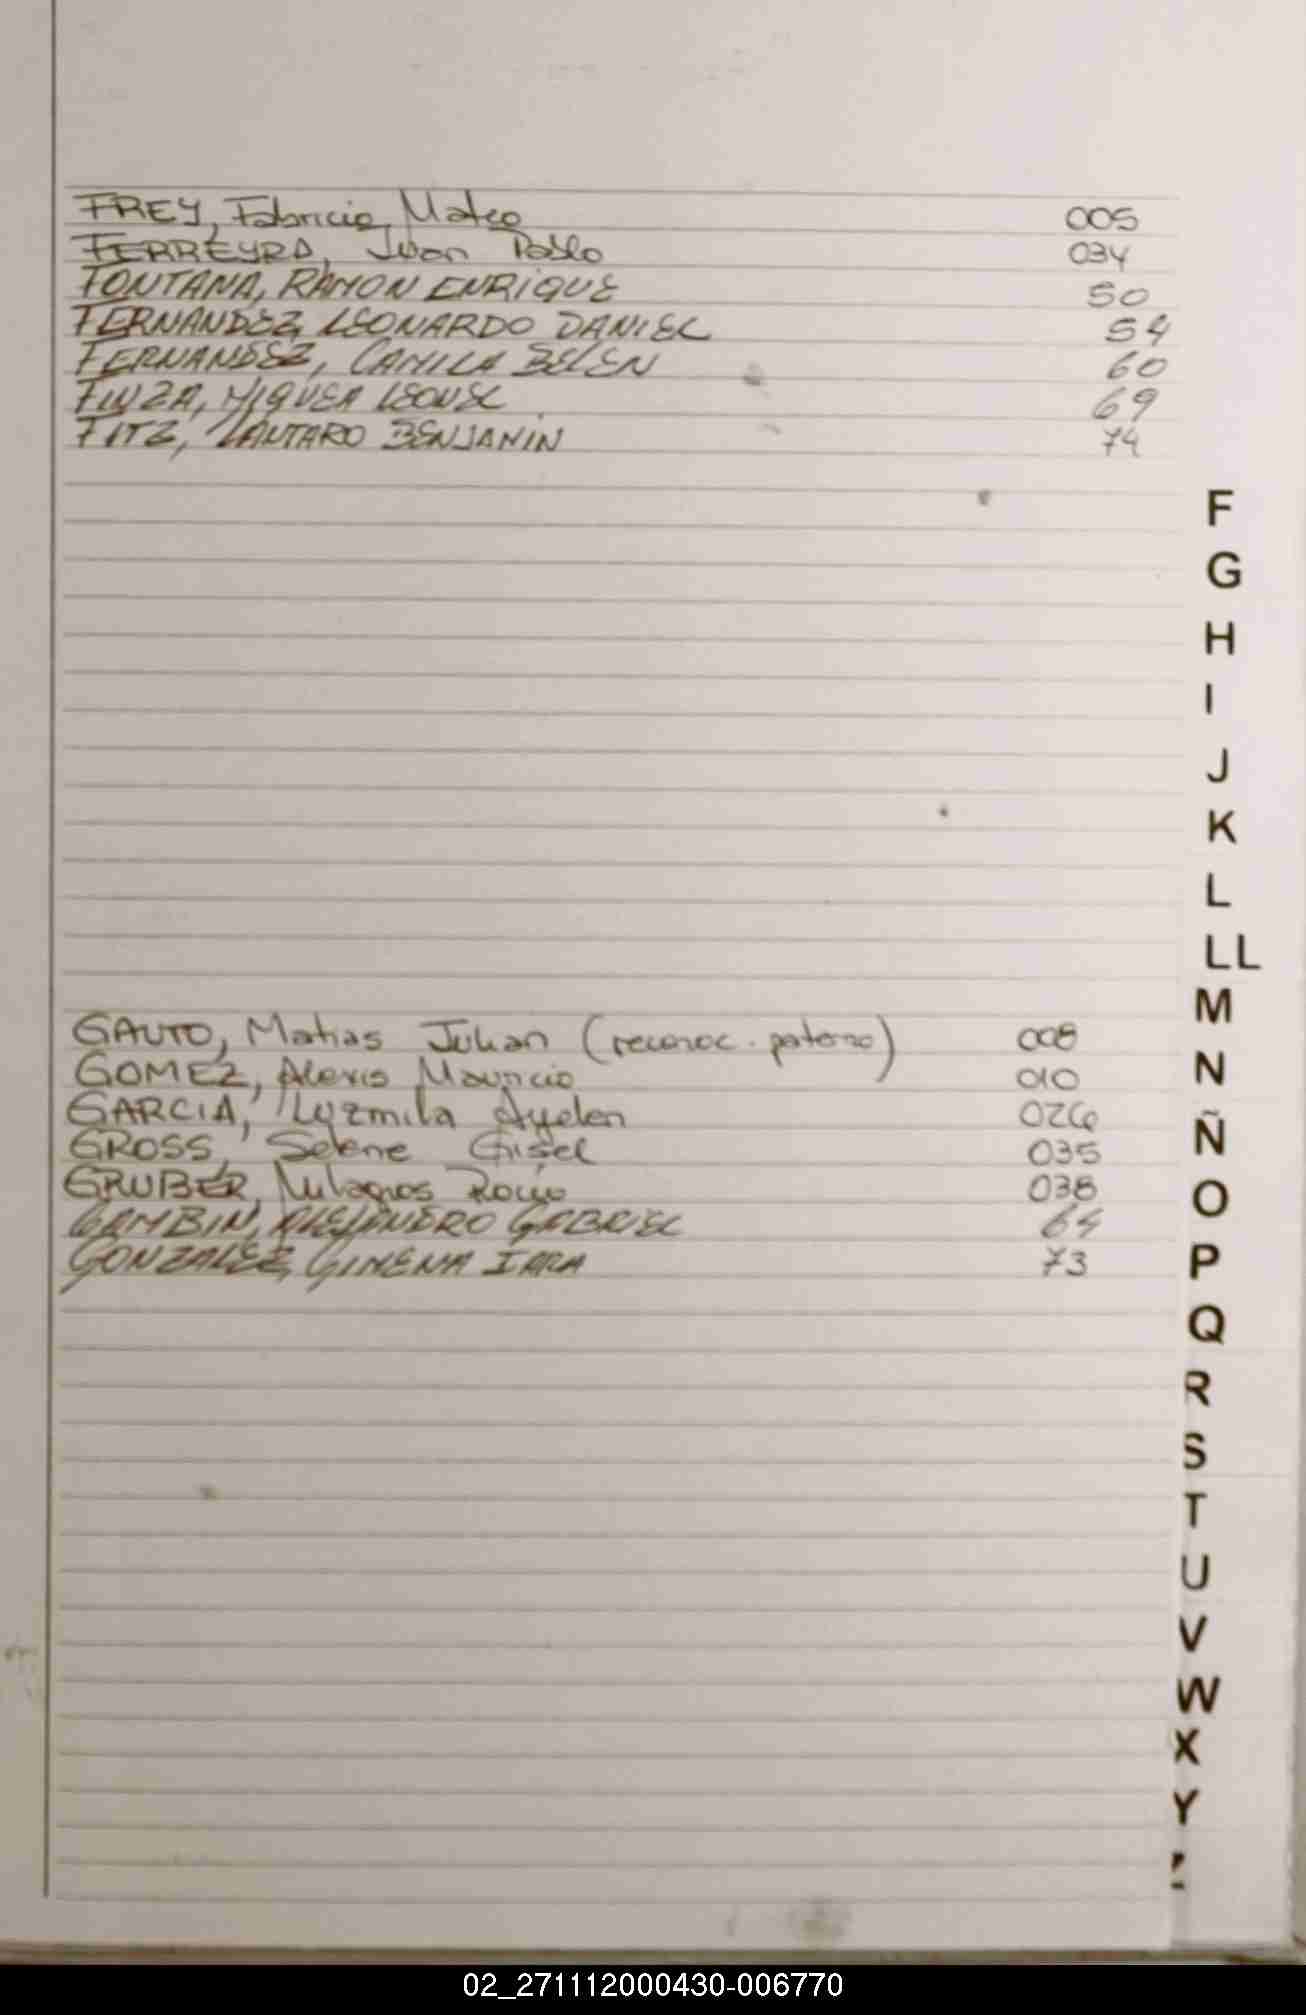 FREY, Fabricio Mateo 005
FERREYRA, Juan Pablo 034
FONTANA, RAMON ENRIQUE 50
FERNANDEZ, LEONARDO DANIEL 54
FERNANDEZ, CAMILA BELEN 60
FINZA, MIQUEA LEONEL 69
FITZ, LAUTARO BENJAMIN 74
F
G
H
I
J
K
L
LL
M
GAUTO, Matias Julian (reconoc. paterno) 008
GOMEZ, Alexis Mauricio 010
N
GARCIA, Luzmila Ayelen 026
GROSS, Selene Gisel 035
Ñ
GRUBER, Milagros Rocio 038
O
GAMBIN, ALEJANDRO GABRIEL 64
GONZALEZ, GIMENA IARA 73
P
Q
R
S
T
U
V
W
X
Y
Z
02_271112000430-006770